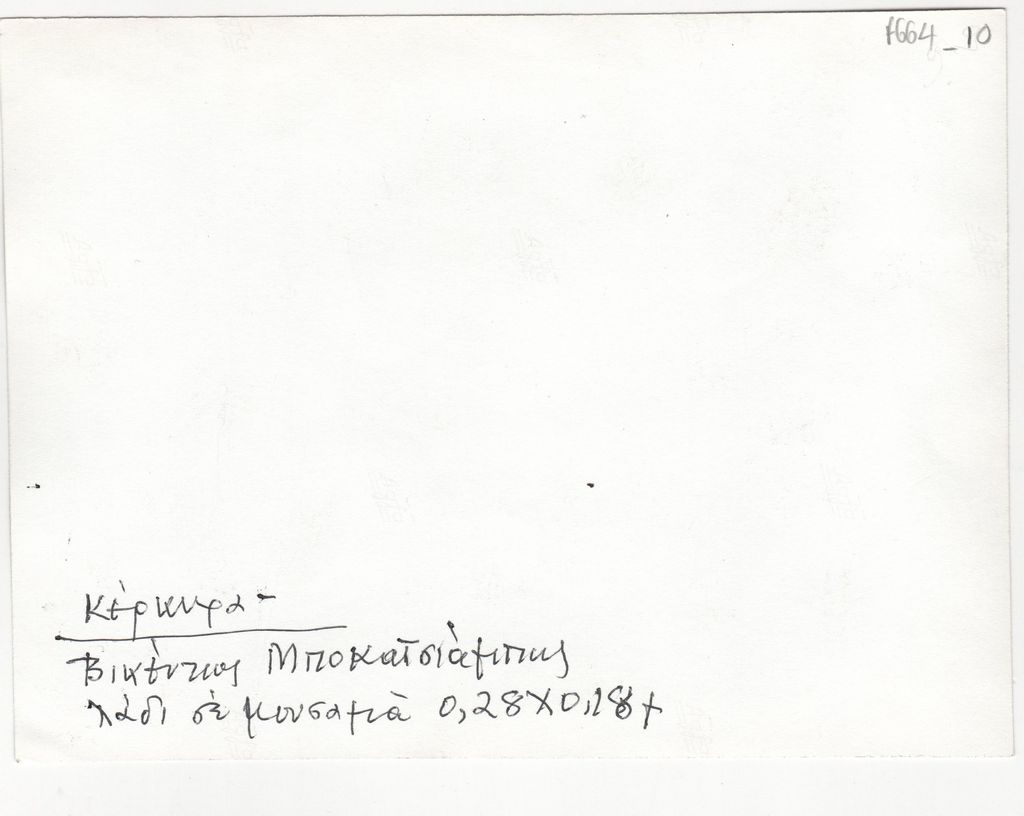 1664_10
Κέρκυρα -
Βικέντιος Μποκατσιάμπης
λάδι σέ μουσαμά 0,28Χ0,18